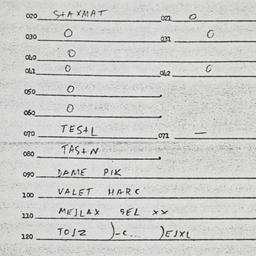 020 STAXMAT 021 0
030 0 031 0
040 0
041 0 042 0
050 0
060 0
070 TESTL 071 —
080 TASTN
090 DAME PIK
100 VALET HARC
110 MEJLAX SEL XX
120